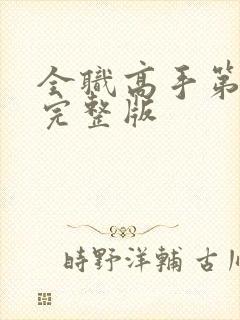 全職高手第
完整版
時野洋輔 古川